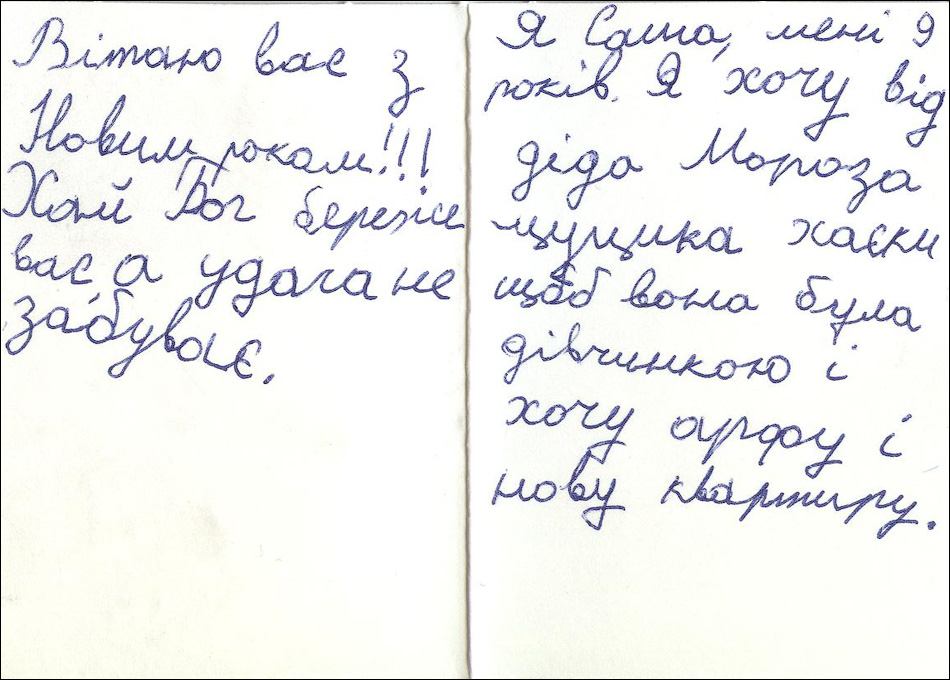 Вітаю вас з
Новим роком!!!
Хай Бог береже
вас а удача не
забуває.
Я Саша, мені 9
років. Я хочу від
діда Мороза
щуцика хаєки
щоб вона була
дівчинкою і
хочу арфу і
нову квартиру.